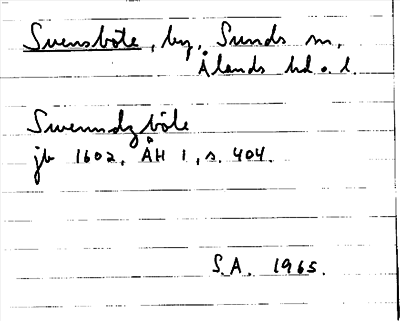 Svensböte, by, Sunds sn,
Ålands hd o. l.
Swenndzböle
jb 1602, ÅH 1, s. 404.
S.A. 1965.